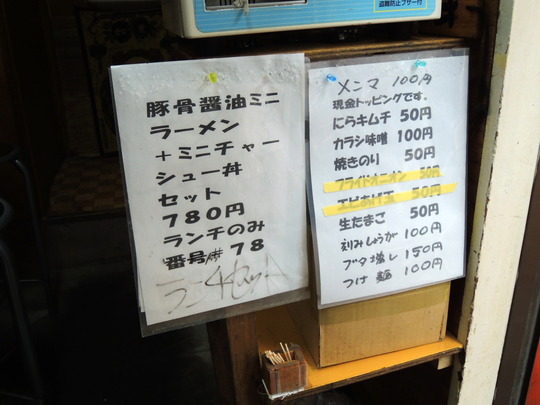 盗難防止ブザー付
豚骨醤油ミニ
ラーメン
+ミニチャー
シュー丼
セット
780円
ランチのみ
番号 78
メンマ 100円
現金トッピングです。
にらキムチ 50円
カラシ味噌 100円
焼きのり 50円
フライドオニオン 50円
エビあげ玉 50円
生たまご 50円
刻みしょうが 100円
ブタ増し 150円
つけ麺 100円